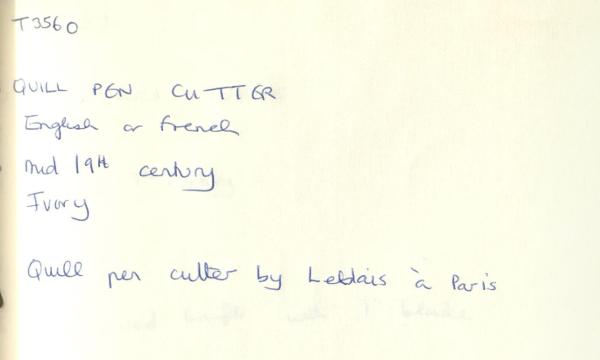 T3560
QUILL PEN CUTTER
English or French
Mid 19th century
Ivory
Quill pen cutter by Leblais à Paris